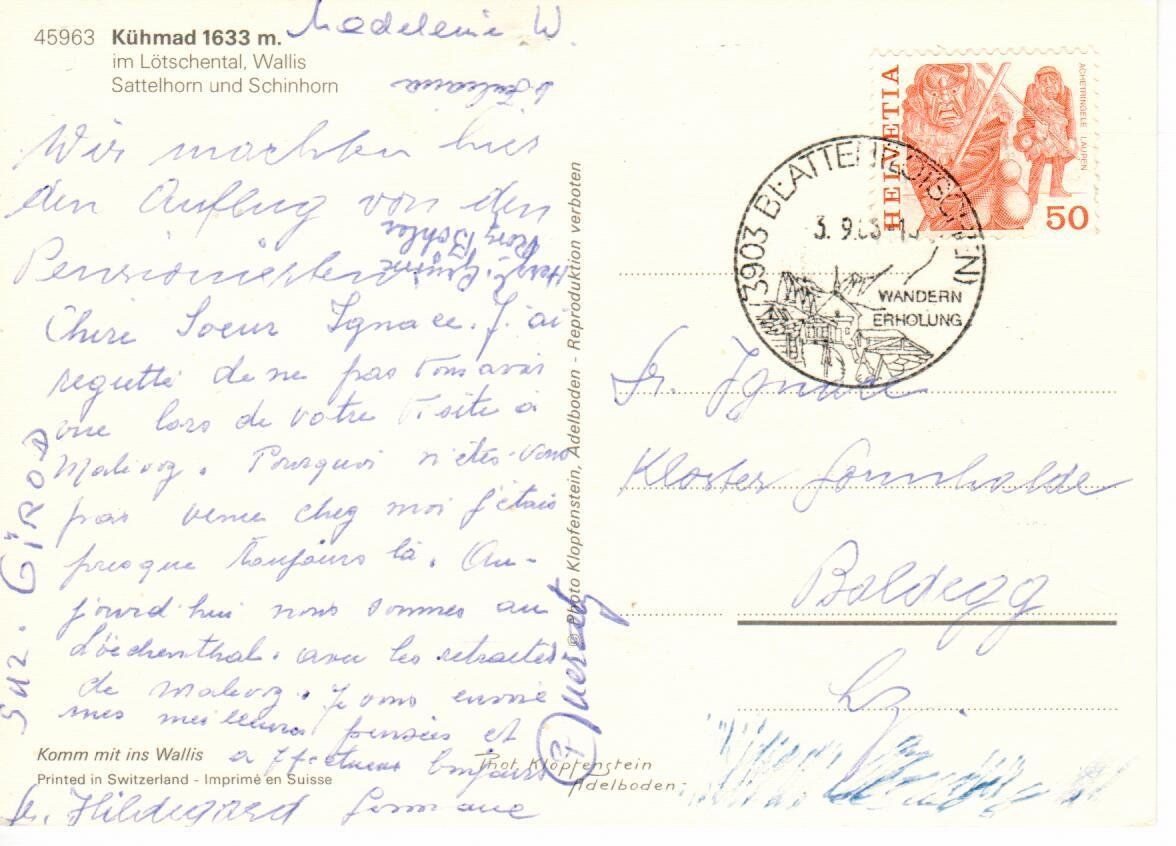 45963 Kühmad 1633 m.
im Lötschental, Wallis
Sattelhorn und Schinhorn
Madeleine W.
Wir machten hier
den Ausflug von den
Chère Soeur Ignace. J'ai
regretté de ne pas vous avoir
vue lors de votre visite à
Malévoz. Pourquoi n'êtes-vous
pas venue chez moi j'étais
presque toujours là. Au-
jourd'hui nous sommes au
avec les retraités
de Malévoz. Je vous envoie
mes meilleures pensées et
affectueux bonjours
Germaine
Sr. Hildegard
Suz. GIROD
Komm mit ins Wallis
Printed in Switzerland - Imprimé en Suisse
© Photo Klopfenstein, Adelboden - Reproduktion verboten
Phot. Klopfenstein
Adelboden
HELVETIA
ACHETRINGELE LAUPEN
50
3903 BLATTEN (LÖTSCHEN)
3. 9.
WANDERN
ERHOLUNG
Sr. Ignace
Kloster Sonnhalde
Baldegg
Lz.